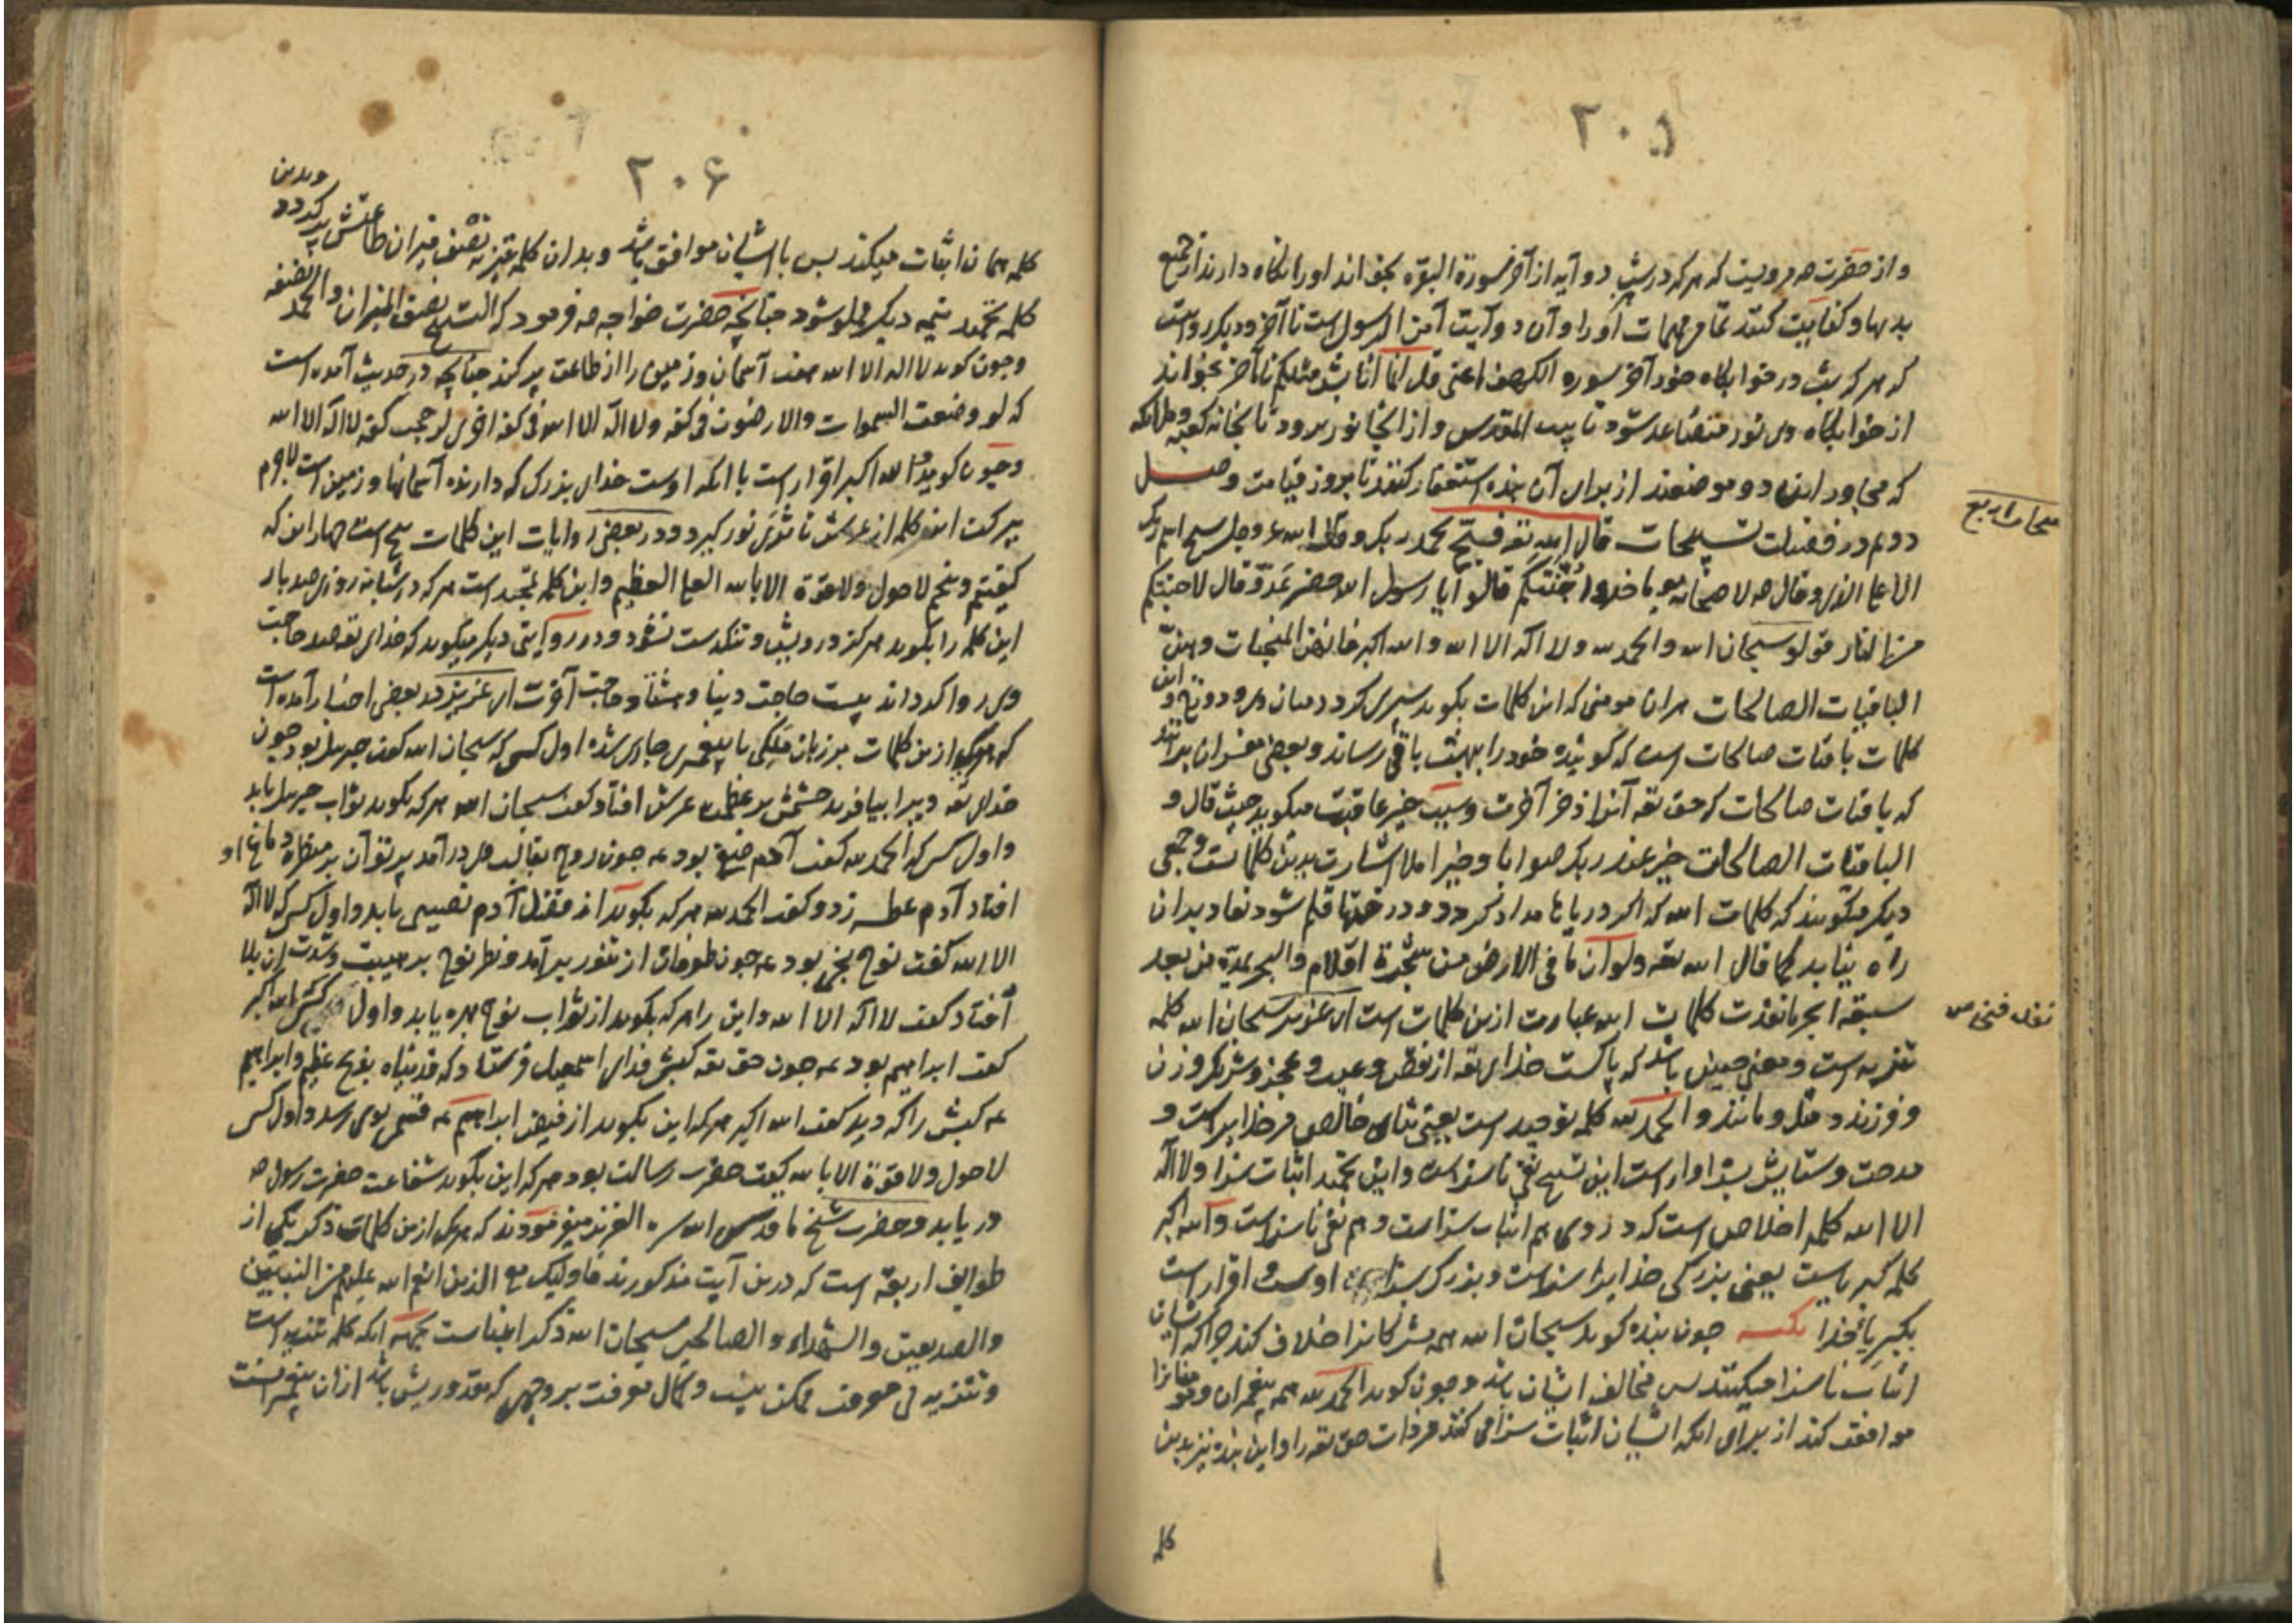 ۲۰۵
و از حضرت مرویست که هر که در شب دو آیه از آخر سورة البقره بخواند او را نگاه دارند از جمیع
بدیها و کفایت کنند تمام مهمات او را و آن دو آیت آمن الرسول است تا آخر و دیگر روایت
که هر که شب در خوابگاه خود آخر سوره الکهف اعنی قل انما انا بشر مثلکم تا آخر بخواند
از خوابگاه وی نور متصاعد شود تا بیت المقدس و از آنجا نور برود تا بخانه کعبه و ملائکه
که مجاور این دو موضعند از برای آن بنده استغفار کنند تا بروز قیامت وصل
سبحات اربع
دوم در فضیلت تسبیحات قال الله تعه فسبح بحمد ربک و قال الله عز وجل سبح اسم ربک
الاعلی الذی و قال صه لاصحابه یوما خذوا جنتکم قالوا یا رسول الله حضر عدو قال لا جنتکم
من النار قولو سبحان الله والحمد لله ولا اله الا الله والله اکبر فانهن المنجیات وهن
الباقیات الصالحات هران مومنی که این کلمات بکوید سپری کردد میان وی و دوزخ و این
کلمات باقیات صالحات است که کوینده خود را بهشت باقی رساند و بعضی مفسران برانند
که باقیات صالحات که حق تعه آنرا ذخر آخرت و سبب خیر عاقبت میکوید حیث قال و
الباقیات الصالحات خیر عند ربک ثوابا و خیر املا اشارت بدین کلماتست و جمعی
دیکر میکویند که کلمات الله که اکر دریاها مداد کردد و درختها قلم شود نفاد بدان
راه نیابد کما قال الله تعه ولو ان ما فی الارض من شجرة اقلام والبحر یمده من بعد
سبعة ابحر ما نفدت کلمات الله عبارت ازین کلمات است ای عزیز سبحان الله کلمه
تنزیه است و معنی چنین باشد که پاکست خدای تعه از نقص و عیب و عجز و شریک و زن
و فرزند و مثل و مانند و الحمد لله کلمه توحید است یعنی ثنای خالص مر خدایراست و
مدحت و ستایش سزاوار است این تسبیح نفی ناسزاست و این تحمید اثبات سزا و لا اله
الا الله کلمه اخلاص است که در وی هم اثبات سزاست و هم نفی ناسزاست و الله اکبر
کلمه کبریاست یعنی بزرکی خدایرا سزاست و بزرک سزا اوست و اقرار است
بکبریا خدا نکته چون بنده کوید سبحان الله همه مشرکانرا خلاف کند چرا که ایشان
اثبات ناسزا میکنند پس مخالف ایشان باشد و چون کوید الحمد لله همه پیغمبران و مومنانرا
موافقت کند از برای انکه ایشان اثبات سزا می کنند مر ذات حق تعه را و این بنده نیز بدین
کلمه
۲۰۶
کلمه همانا اثبات میکند پس با ایشان موافق باشد و بدان کلمه تنزیه نصف میزان طاعتش پر کردد و بدین
کلمه تحمید نیمه دیکر مملو شود چنانچه حضرت خواجه صه فرمود که التسبیح نصف المیزان والحمد
و چون کوید لا اله الا الله هفت آسمان و زمین را از طاعت پر کند چنانچه در حدیث آمده است
که لو وضعت السموات والارضون فی کفه ولا اله الا الله فی کفه اخری لرجحت کفه لا اله الا الله
و چون کوید الله اکبر اقرار است با انکه اوست خدای بزرک که دارنده آسمانها و زمین است لاجرم
ببرکت این کلمه از عرش تا ثری نور کیرد و در بعضی روایات این کلمات پنج است چهار این که
کفتیم و پنجم لاحول ولا قوة الا بالله العلی العظیم و این کلمه تمجید است هر که در شبانه روزی صد بار
این کلمه را بکوید هرکز درویش و تنکدست نشود و در روایتی دیکر میکوید که خدای تعه صد حاجت
وی روا کرداند بیست حاجت دینا و هشتاد حاجت آخرت ای عزیز در بعضی اخبار آمده است
که هریک ازین کلمات بر زبان ملکی یا پیغمبری جاری شده اول کسی که سبحان الله کفت جبریل بود چون
خدای تعه ویرا بیافرید چشمش بر عظمت عرش افتاد کفت سبحان الله هر که بکوید ثواب جبریل یابد
و اول کس که الحمد لله کفت آدم صفی بود عه چون روح بقالب وی درآمد پرتو آن بر منظره دماغ او
افتاد آدم عطسه زد و کفت الحمد لله هر که بکوید از فضل آدم نصیبی یابد و اول کس که لا اله
الا الله کفت نوح نجی بود عه چون طوفان از تنور برآمد و نظر نوح بر هیبت و شدت ان بلا
افتاد کفت لا اله الا الله و این را هر که بکوید از ثواب نوح بهره یابد و اول کس که الله اکبر
کفت ابراهیم بود عه چون حق تعه کبش فدای اسمعیل فرستاد که فدیناه بذبح عظیم و ابراهیم
عه کبش را که دید کفت الله اکبر هر که این بکوید از فیض ابراهیم عه قسمی بوی رسد و اول کس
لاحول ولا قوة الا بالله کفت حضرت رسالت بود هر که این بکوید شفاعت حضرت رسول صه
دریابد و حضرت شیخ ما قدس الله سره العزیز میفرمودند که هریک ازین کلمات ذکر یکی از
طوایف اربعه است که درین آیت مذکورند فاولیک مع الذین انعم الله علیهم من النبیین
والصدیقین والشهداء والصالحین سبحان الله ذکر انبیاست بجهة انکه کلمه تنزیه است
و تنزیه بی معرفت ممکن نیست و کمال معرفت بر وجهی که مقدور بشر باشد ازان پیغمبرانست